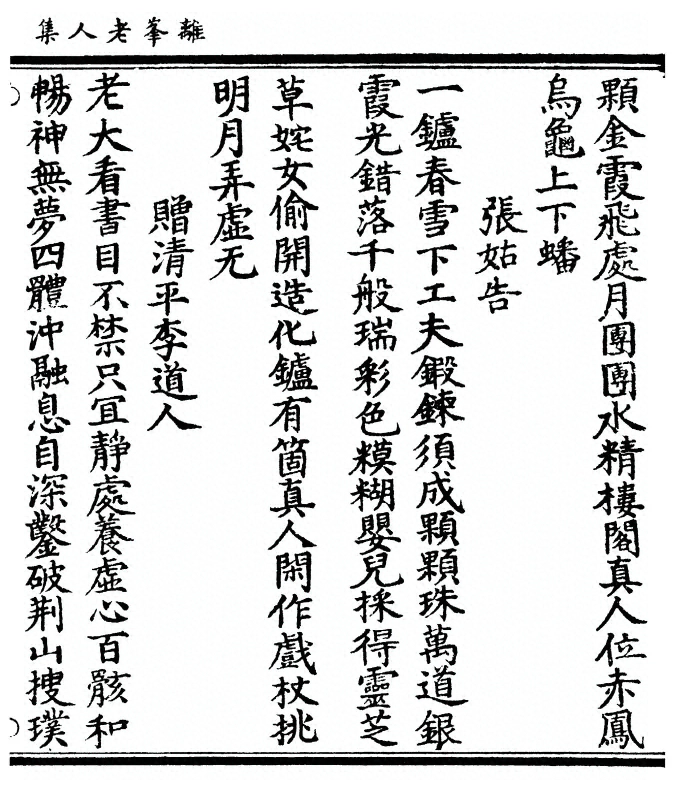 離峯老人集
顆金霞飛處月團團水精樓閣真人位赤鳳
烏龜上下蟠
張姑告
一鑪春雪下工夫鍛鍊須成顆顆珠萬道銀
霞光錯落千般瑞彩色糢糊嬰兒採得靈芝
草姹女偷開造化鑪有箇真人閑作戲杖挑
明月弄虛无
贈清平李道人
老大看書目不禁只宜靜處養虛心百骸和
暢神無夢四體沖融息自深鑿破荆山搜璞